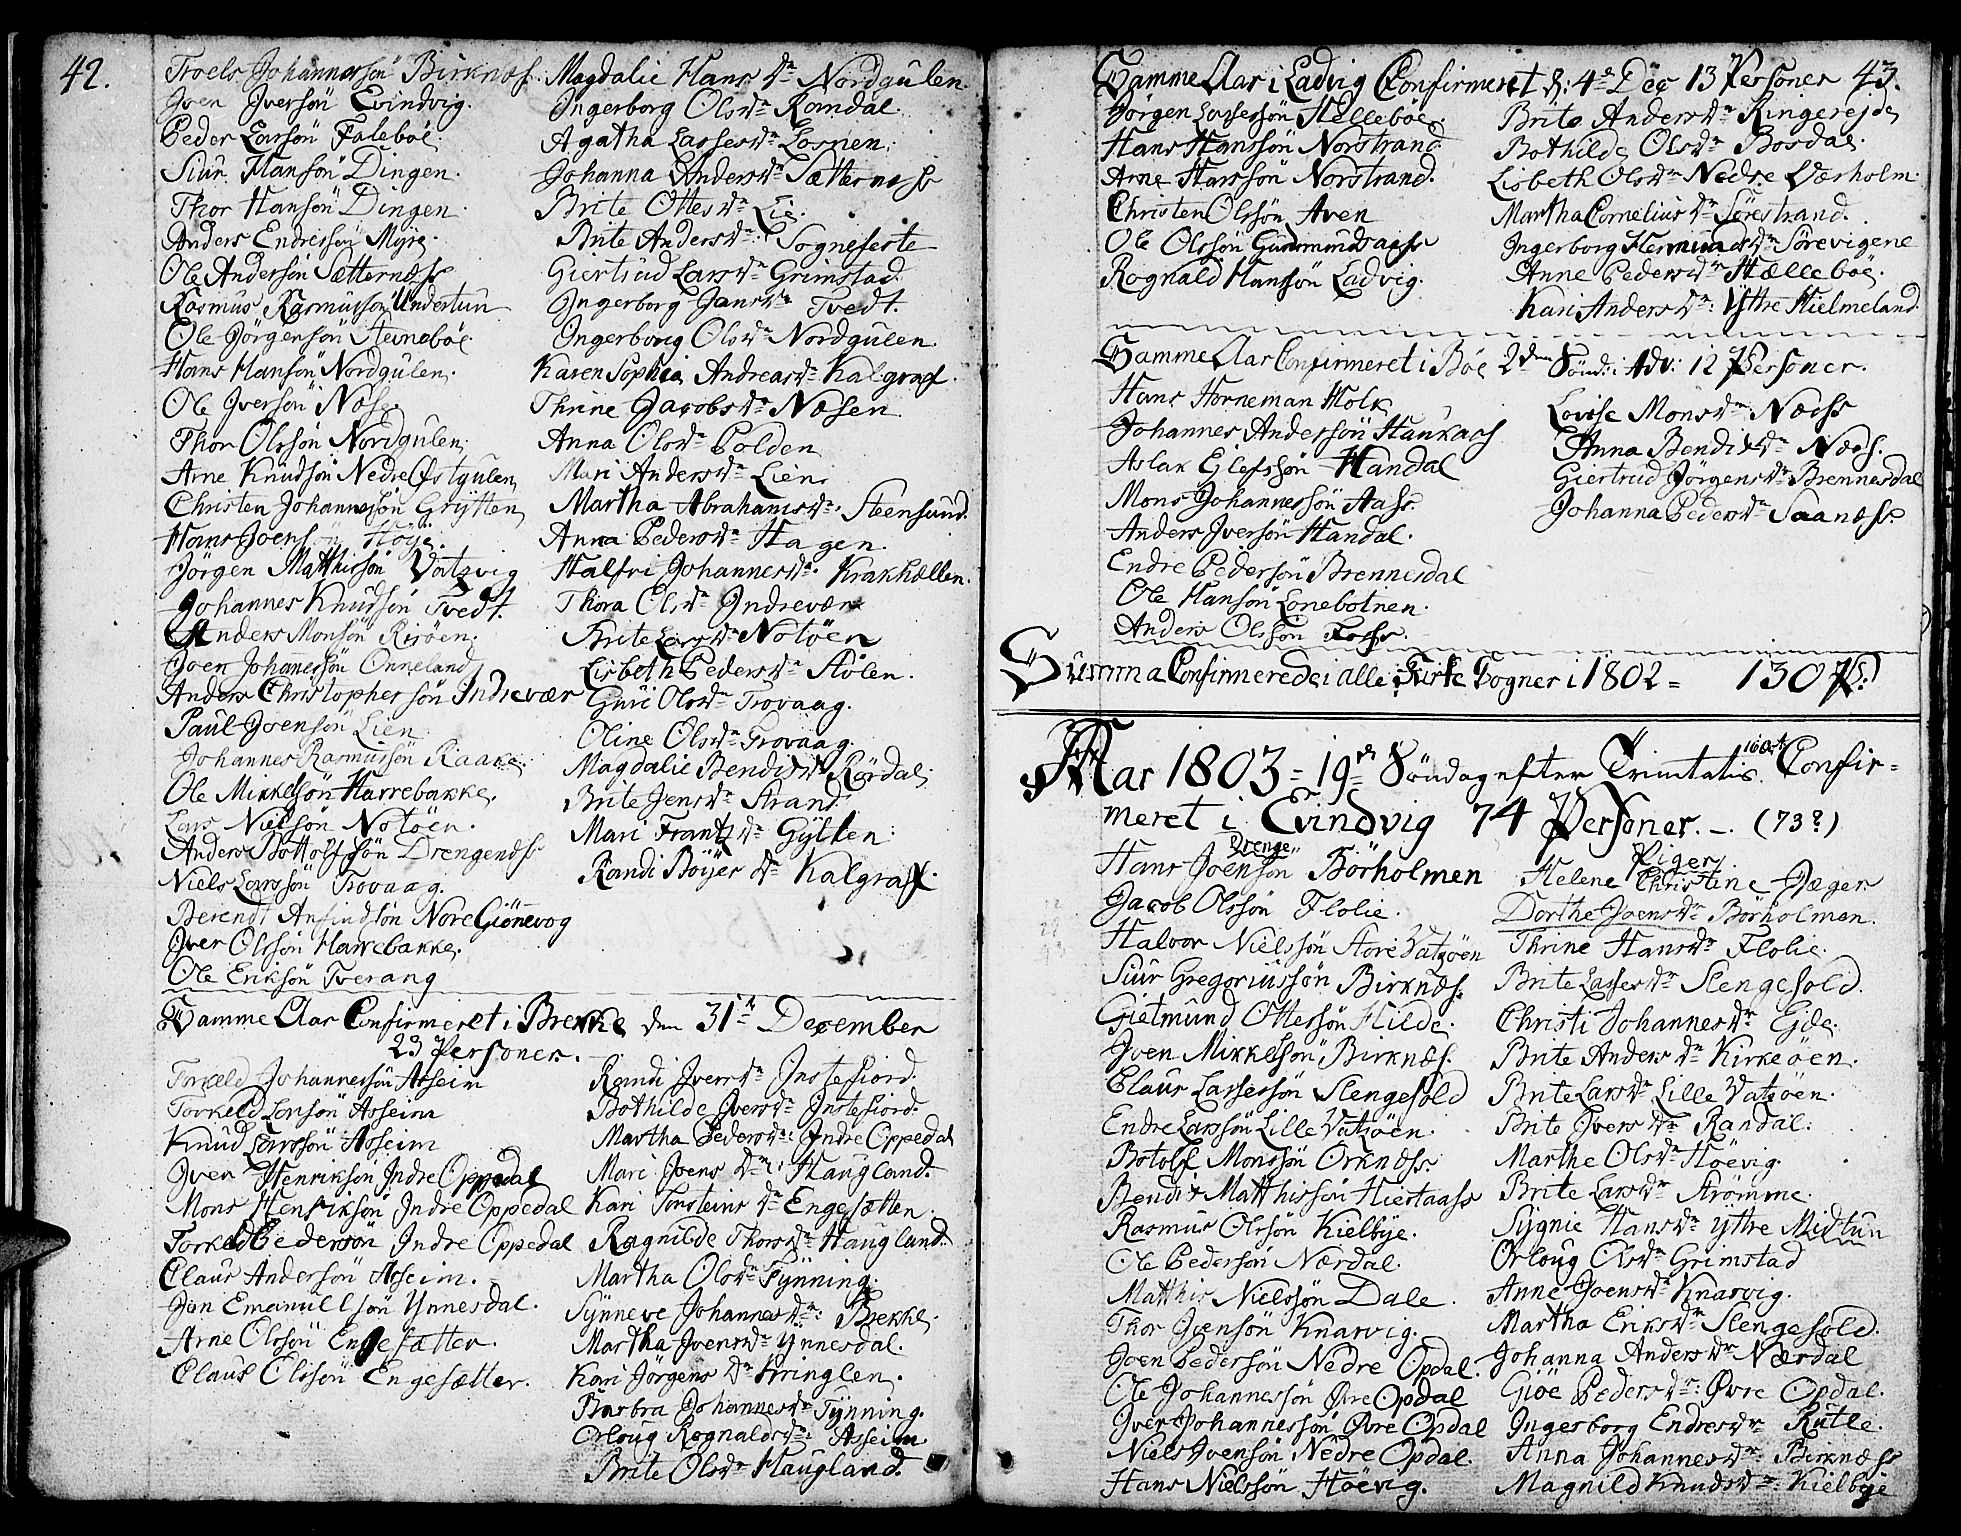 42.
Troels Johannessön Birknæs.
Joen Jversön Evindvig.
Peder Larsön Faleböe
Siur Hansön Dingen.
Thor Hansön Dingen.
Anders Endressön Myre.
Ole Andersön Sætternæss
Rasmus Rasmussön Undertun
Ole Jörgensön Steineböe
Hans Hansön Nordgulen.
Ole Jversön Nose.
Thor Olssön Nordgulen.
Arne Knudsön Nedre Östgulen
Christen Johannesön Grytten
Hans Joensön Höye.
Jörgen Matthisön Vatzvig
Johannes Knudsön Tvedt.
Anders Monsön Risöen.
Joen Johannessön Onneland
Anders Christophersön Indrevær
Paul Joensön Lien
Johannes Rasmussön Raake
Ole Mikkelsön Harrebakke.
Lars Nielsön Notöen.
Anders Bottolfsön Drengenæss
Niels Larssön Trovaag.
Berendt Anfindsön Nore Giönevog
Jver Olssön Harrebakke.
Ole Eriksön Tverang
Magdalie Hans Dr Nordgulen.
Jngerborg Ols Dr Ramdal
Agatha Lasses Dr Losnen.
Johanna Anders Dr Sætternæss
Brite Ottes Dr Lie.
Brite Anders Dr: Sognefeste
Giertrud Lars Dr Grimstad.
Jngerborg Jans Dr Tvedt.
Jngerborg Ols Dr Nordgulen.
Karen Sophia Andreas Dr Kalgraf.
Thrine Jacobs Dr Næsen
Anna Ols Dr Polden
Mari Anders Dr Lien
Martha Abrahams Dr. Steensund.
Anna Peders Dr Hagen.
Halfri Johannes Dr. Krakhællen.
Thora Ols Dr Jndrevær
Brite Lars Dr Notöen
Lisbeth Peders Dr Stölen.
Guri Ols Dr Trovaag.
Oline Ols Dr Trovaag.
Magdalie Bendix Dr Rördal.
Brite Jens Dr Strand.
Mari Frantz Dr Gylten:
Randi Böyes Dr Kalgraf.
Samme Aar Confirmeret i Brekke den 31te December
23 Personer.
Torkeld Johannessön Asseim
Torkeld Larsön Asseim
Knud Larssön Asseim
Jver Henriksön Jndre Oppedal
Mons Henriksön Jndre Oppedal
Torkeld Pedersön Jndre Oppedal
Claus Andersön Asseim.
Jan Emanuelsön Ynnesdal.
Arne Olssön Engesætter
Claus Olssön Engesætter.
Randi Jvers Dr Jnstefiord.
Bothilde Jvers Dr Jnstefiord.
Martha Peders Dr: Jndre Oppedal
Mari Joens Dr: Haugland.
Kari Torsteins Dr Engesætten.
Ragnilde Thors Dr Haugland.
Martha Ols Dr Tynning.
Synneve Johannes Dr: Brekke.
Martha Jvers Dr Ynnesdal.
Kari Jörgens Dr Kringlen.
Barbra Johannes Dr Tynning.
Orloug Rognalds Dr: Asseim
Brite Ols Dr Haugland.
Samme Aar i Ladvig Confirmeret d: 4de Dec 13 Personer 43.
Jörgen Lassesön Helleböe.
Hans Hanssön Norstrand
Arne Hanssön Norstrand.
Christen Olssön Aven
Ole Olssön Gudmundsaass
Rognald Hanssön Ladvig.
Brite Anders Dr Ringereide
Bothilde Ols Dr Bosdal.
Lisbeth Ols Dr Nedre Værholm.
Martha Cornelius Dr Sörestrand.
Jngerborg Hermunds Dr Sörevigene
Anne Peders Dr Hælleböe.
Kari Anders Dr: Yttre Hielmeland.
Samme Aar Confirmeret i Böe 2den Sönd: i Adv: 12 Personer.
Hans Horneman Holk
Johannes Andersön Haukaas
Aslak Elefssön Handal
Mons Johannessön Aass.
Anders Jversön Handal.
Endre Pedersön Brennesdal
Ole Hansön Lonebotnen.
Anders Olssön Foss.
Lovise Mons Dr Næss
Anna Bendix Dr Næss.
Giertrud Jörgens Dr Brennesdal
Johanna Peders Dr Saanæss.
Summa Confirmerede i alle Kirke Sogner i 1802 = 130 P:
Aar 1803 = 19de Söndag efter Trinitatis 16 Oct. Confir=
meret i Evindvig 74 Personer. _. (73?)
Drenge
Hans Joensön Börholmen
Jacob Olssön Flolie.
Halvor Nielssön Store Vatzöen
Siur Gregoriussön Birknæs.
Gietmund Ottersön Hilde.
Joen Mikkelsön Birknæs.
Claus Lassesön Slengesold
Endre Larssön Lille Vatzöen.
Botolf Monssön Orknæss
Bendix Matthissön Hiertaass
Rasmus Olssön Kielbye.
Ole Pedersön Nærdal.
Matthis Nielssön Dale.
Thor Joensön Knarvig.
Joen Pedersön Nedre Opdal.
Ole Johannessön Övre Opdal
Jver Johannessön Övre Opdal
Niels Jvensön Nedre Opdal.
Hans Nielssön Höevig.
Piger.
Helene Christine Jæger
Dorthe Joens Dr Börholmen.
Thrine Hans Dr Flolie.
Brite Lasses Dr Slengesold.
Christi Johannes Dr Eide.
Brite Anders Dr Kirkeöen.
Brite Lars Dr Lille Vatzöen.
Brite Jvers Dr Randal.
Marthe Ols Dr Höevig.
Brite Lars Dr Strömme.
Sygnie Hans Dr Yttre Midtun
Orloug Ols Dr Grimstad
Anne Joens Dr Knarvig.
Martha Eriks Dr Slengesold.
Johanna Anders Dr Nærdal
Giöe Peders Dr: Övre Opdal.
Jngerborg Endres Dr Rutle.
Anna Johannes Dr: Birknæss
Magnild Knuds Dr: Kielbye